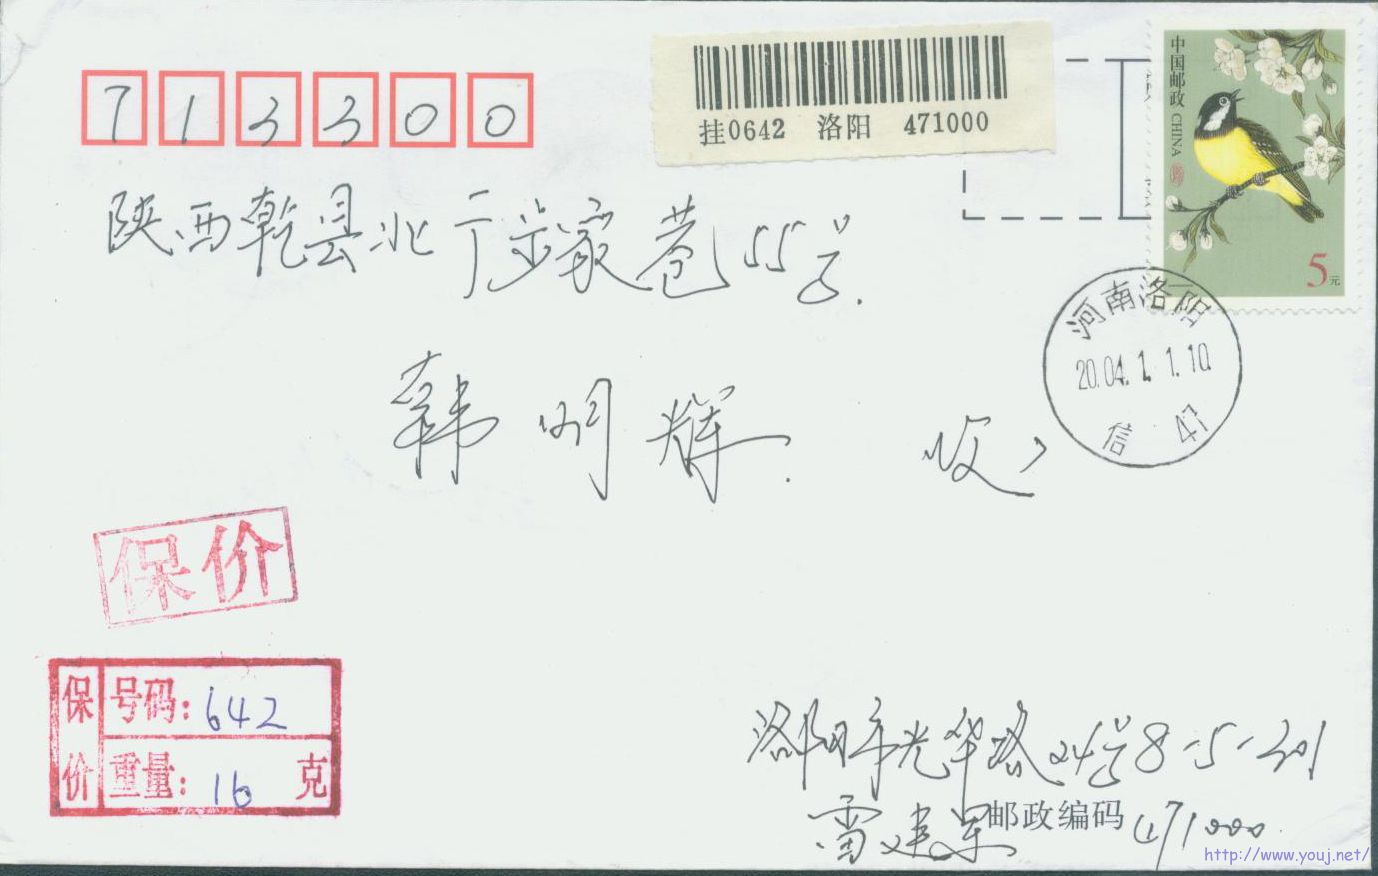 713300
挂0642 洛阳 471000
中国邮政 CHINA
5元
陕西乾县北 家巷55号.
河南洛阳
20.04.1.1.10
信 47
韩明辉. 收
保价
保价
号码: 642
重量: 16 克
洛阳市光华路24号8-5-301
雷建军
邮政编码 471000
http://www.youj.net/